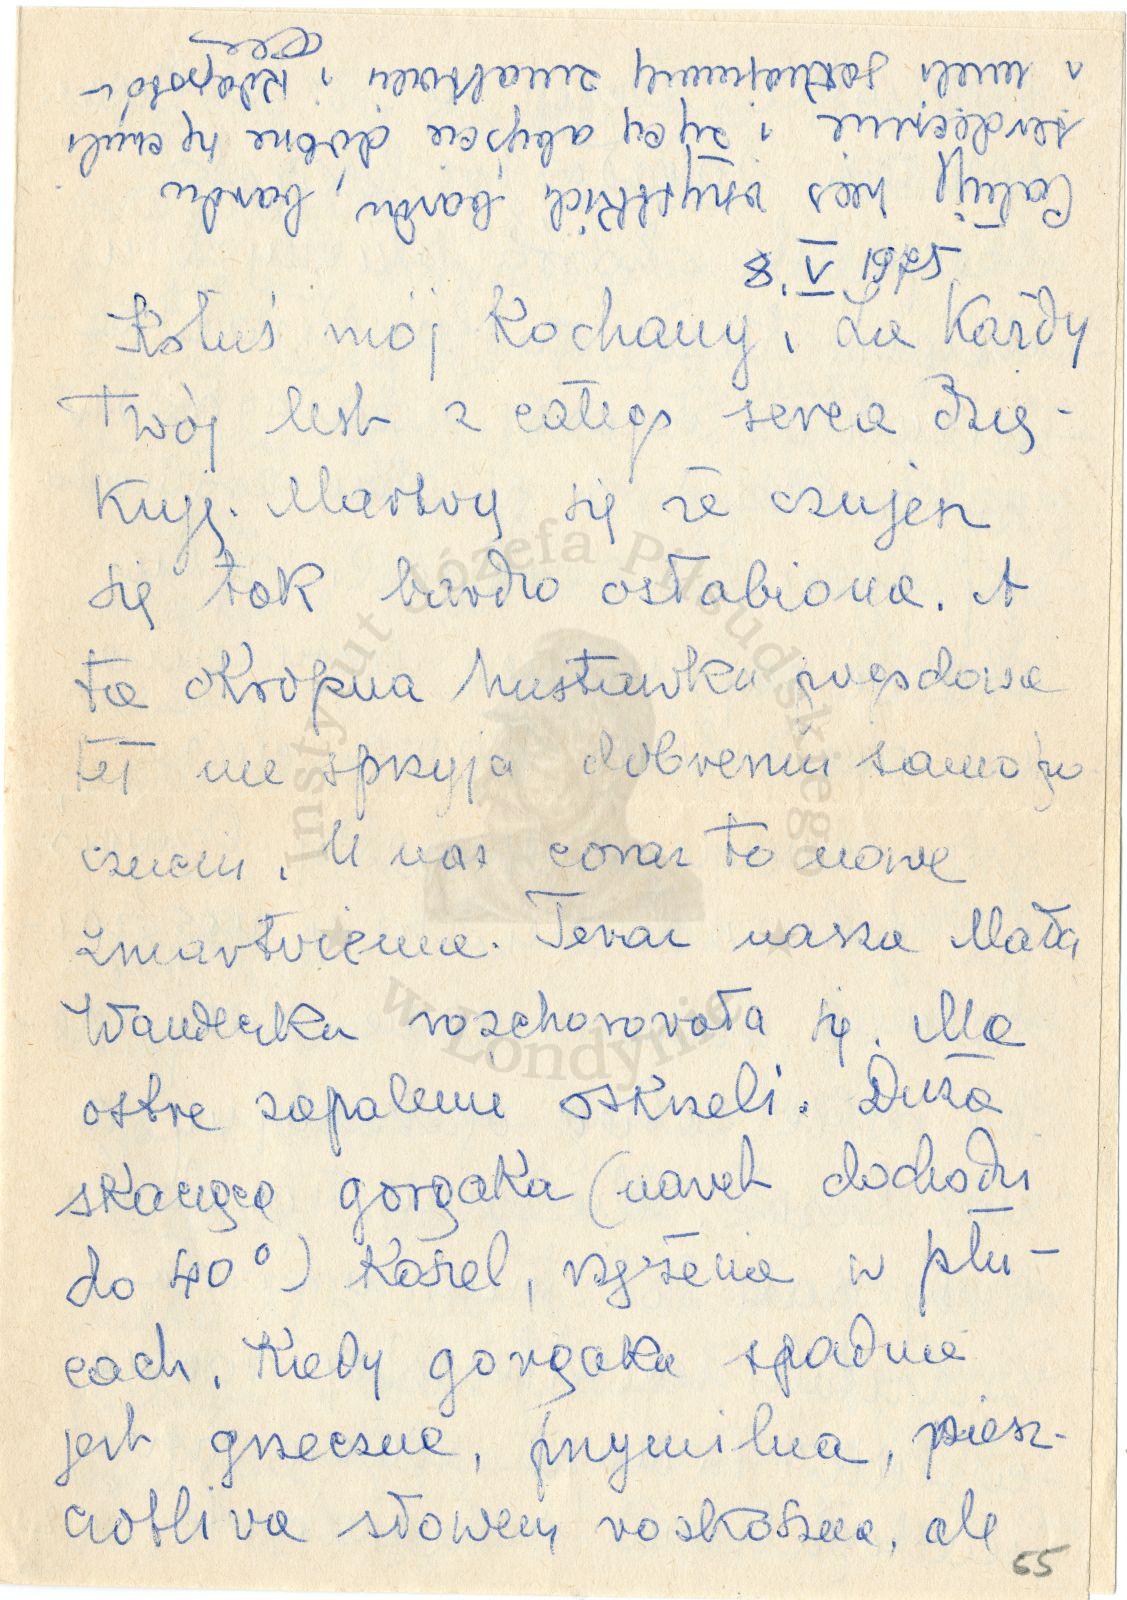 8. V 1975
Kotuś mój Kochany, Za Każdy
Twój list z całego serca Dzię-
kuję. Martwię się że czujesz
się tak bardzo osłabiona. A
ta okropna huśtawka pogodowa
też nie sprzyja dobremu samopo
czuciu. U nas coraz to nowe
zmartwienia. Teraz nasza Mała
Wandeczka rozchorowała się. Ma
ostre zapalenie oskrzeli. Duża
skacząca gorączka (nawet dochodzi
do 40°) Kaszel, rzężenia w płu-
cach. Kiedy gorączka spadnie
jest grzeczna, przymilna, piesz-
czotliwa słowem rozkoszna, ale
55
Całuję Was wszystkich bardzo, bardzo
serdecznie i życzę abyście dobrze się czuli
i mieli jak najmniej zmartwień i kłopotów
Instytut Józefa Piłsudskiego
w Londynie